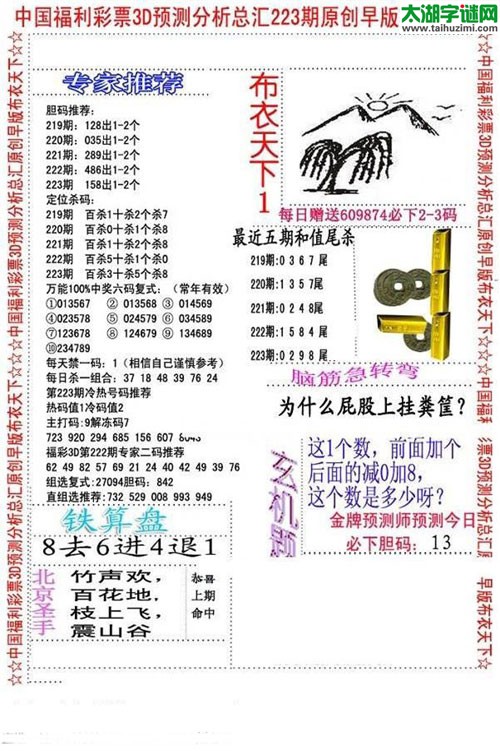 中国福利彩票3D预测分析总汇223期原创早版
太湖字谜网
www.taihuzimi.com
☆☆中国福利彩票3D预测分析总汇原创早版布衣天下☆
专家推荐
胆码推荐:
219期: 128出1-2个
220期: 035出1-2个
221期: 289出1-2个
222期: 486出1-2个
223期 158出1-2个
定位杀码:
219期 百杀1十杀2个杀7
220期 百杀0十杀1个杀8
221期 百杀0十杀1个杀8
222期 百杀1十杀0个杀8
223期 百杀3十杀5个杀8
万能100%中奖六码复式: (常年有效)
①013567 ② 013568 ③ 014569
④023578 ⑤ 024579 ⑥ 034579
⑦123678 ⑧ 124679 ⑨ 134689
⑩234789
每天禁一码: 1 (相信自己谨慎参考)
每日杀一组合: 37 18 48 39 76 24
第223期冷热号码推荐
热码值1冷码值2
主打码: 9解冻码7
723 920 294 685 156 607
福彩3D第222期专家二码推荐
62 49 82 57 69 21 24 40 42 49 39 76
组选复式: 27094胆码: 842
直组选推荐: 732 529 008 993 949
铁算盘
8去6进4退1
北京圣手
竹声欢,
百花地,
枝上飞,
震山谷
恭喜
上期
命中
布衣天下1
每日赠送609874必下2-3码
最近五期和值尾杀
219期:0 3 6 7 尾
220期:1 3 5 7 尾
221期:0 2 4 8 尾
222期:1 5 8 4 尾
223期:0 2 9 8 尾
脑筋急转弯
为什么屁股上挂粪筐?
玄机题
这1个数, 前面加个
后面的减0加8,
这个数是多少呀?
金牌预测师预测今日
必下胆码: 13
☆中国福利彩票3D预测分析总汇原创早版布衣天下☆☆